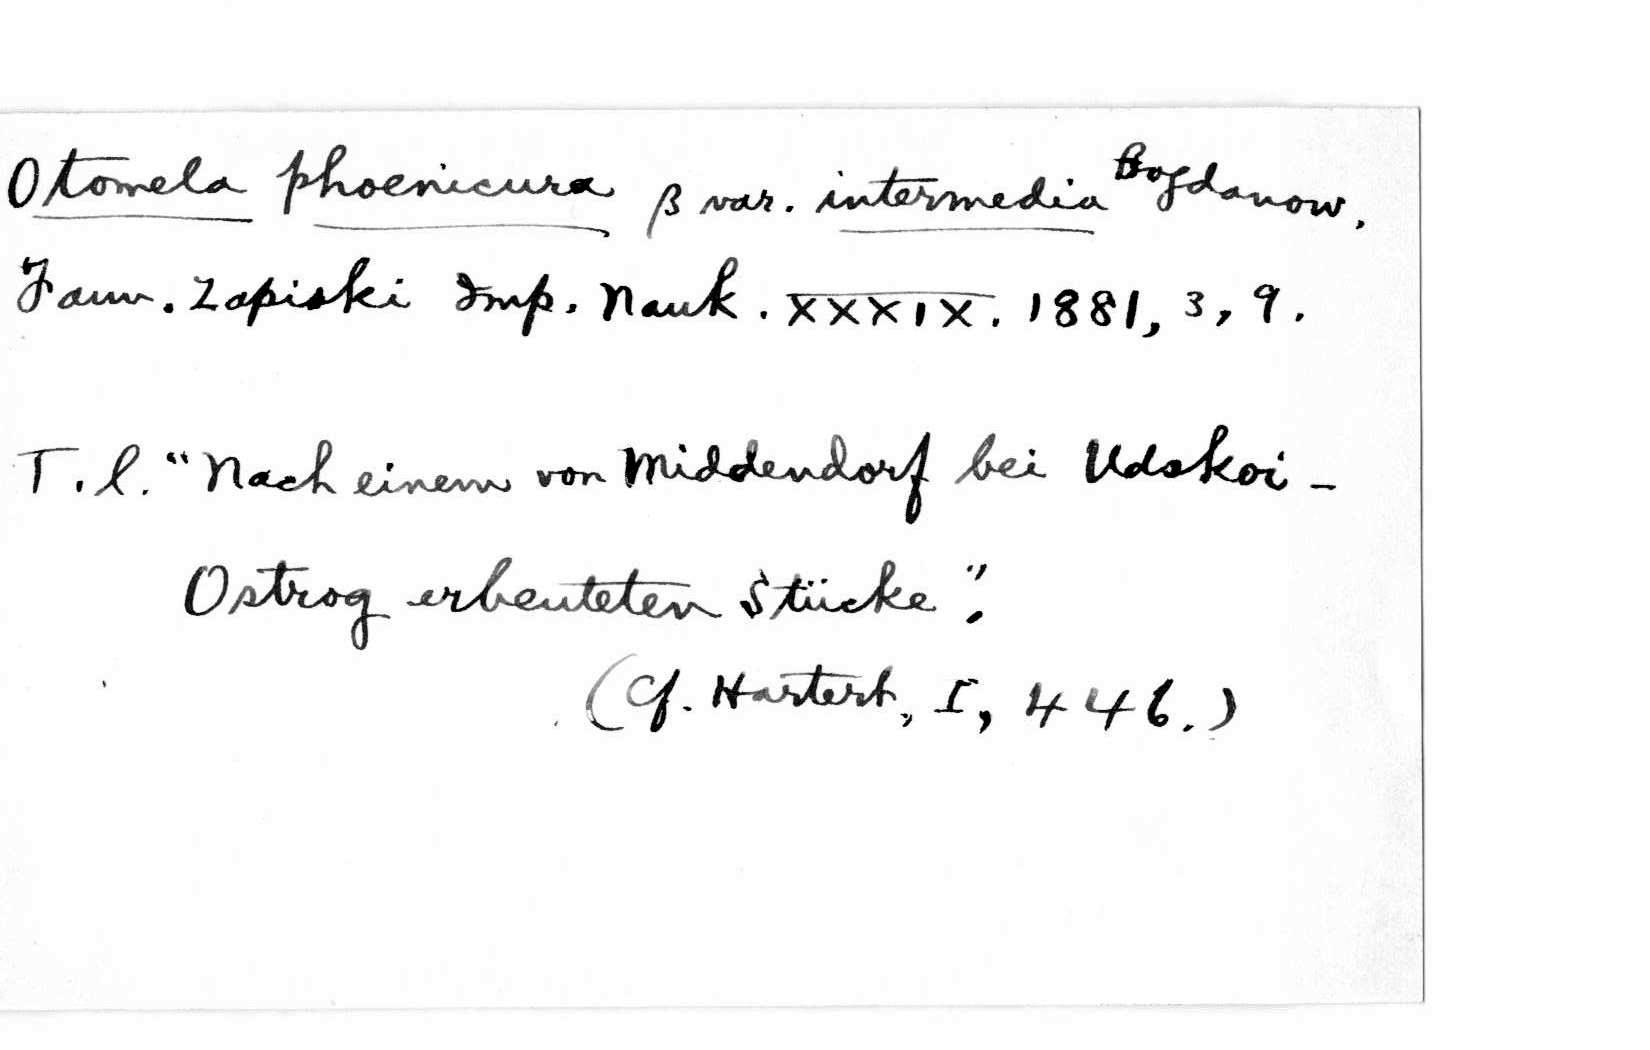 Otomela phoenicura β var. intermedia Bogdanow,
Faun. Zapiski Imp. Nauk. XXXIX. 1881, 3, 9.
T. l. "Nach einem von Middendorf bei Udskoi-
Ostrog erbeuteten Stücke".
(Cf. Hartert, I, 446.)